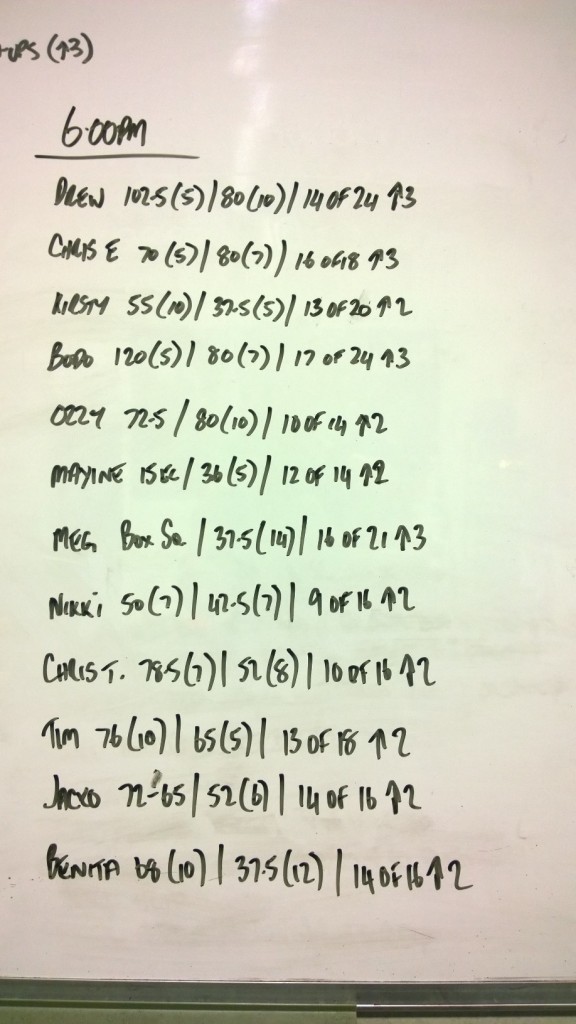 -UPS (↑3)
6:00PM
DREW 102.5(5) | 80(10) | 14 OF 24 ↑3
CHRIS E 70(5) | 80(7) | 16 OF 18 ↑3
KIRSTY 55(10) | 37.5(5) | 13 OF 20 ↑2
BODO 120(5) | 80(7) | 17 OF 24 ↑3
OZZY 72.5 | 80(10) | 10 OF 14 ↑2
MAYINE 15EC | 36(5) | 12 OF 14 ↑2
MEG BOX SQ | 37.5(14) | 16 OF 21 ↑3
NIKKI 50(7) | 42.5(7) | 9 OF 16 ↑2
CHRIS T. 78.5(7) | 52(8) | 10 OF 16 ↑2
TIM 76(10) | 65(5) | 13 OF 18 ↑2
JACKO 72-65 | 52(6) | 14 OF 16 ↑2
BENITA 68(10) | 37.5(12) | 14 OF 16 ↑2